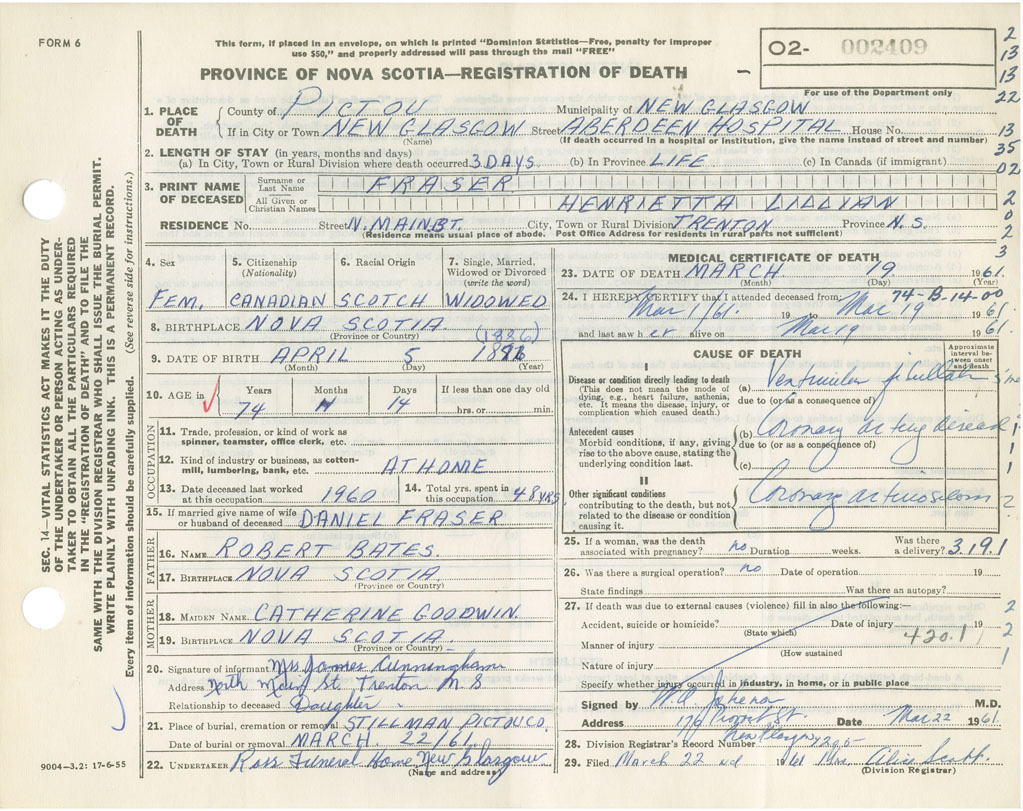 FORM 6
This form, if placed in an envelope, on which is printed "Dominion Statistics—Free, penalty for improper
use $50," and properly addressed will pass through the mail "FREE"
O2- 002409
For use of the Department only
PROVINCE OF NOVA SCOTIA—REGISTRATION OF DEATH
2
13
13
22
13
35
02
2
0
2
3
1. PLACE OF DEATH County of PICTOU Municipality of NEW GLASGOW
If in City or Town NEW GLASGOW Street ABERDEEN HOSPITAL House No.
(Name) (If death occurred in a hospital or institution, give the name instead of street and number)
2. LENGTH OF STAY (in years, months and days)
(a) In City, Town or Rural Division where death occurred 3 DAYS (b) In Province LIFE (c) In Canada (if immigrant)
3. PRINT NAME OF DECEASED Surname or Last Name FRASER
All Given or Christian Names HENRIETTA LILLIAN
RESIDENCE No. Street N. MAIN ST. City, Town or Rural Division TRENTON Province N.S.
(Residence means usual place of abode. Post Office Address for residents in rural parts not sufficient)
4. Sex 5. Citizenship (Nationality) 6. Racial Origin 7. Single, Married, Widowed or Divorced (write the word)
FEM. CANADIAN SCOTCH WIDOWED
8. BIRTHPLACE NOVA SCOTIA
(Province or Country) (1886)
9. DATE OF BIRTH APRIL 5
(Month) (Day) (Year)
10. AGE in Years Months Days If less than one day old
74 14 hrs. or min.
OCCUPATION
11. Trade, profession, or kind of work as
spinner, teamster, office clerk, etc.
12. Kind of industry or business, as cotton-
mill, lumbering, bank, etc. AT HOME
13. Date deceased last worked
at this occupation 1960
14. Total yrs. spent in
this occupation 48 YRS
15. If married give name of wife
or husband of deceased DANIEL FRASER
FATHER
16. NAME ROBERT BATES.
17. BIRTHPLACE NOVA SCOTIA
(Province or Country)
MOTHER
18. MAIDEN NAME CATHERINE GOODWIN
19. BIRTHPLACE NOVA SCOTIA
(Province or Country)
20. Signature of informant Mrs James Cunningham
Address North Main St. Trenton N S
Relationship to deceased Daughter
21. Place of burial, cremation or removal STILLMAN PICTOU CO.
Date of burial or removal MARCH 22/61
22. UNDERTAKER Ross Funeral Home New Glasgow
(Name and address)
MEDICAL CERTIFICATE OF DEATH
23. DATE OF DEATH MARCH 19 1961.
(Month) (Day) (Year)
74-B-14-00
24. I HEREBY CERTIFY that I attended deceased from:
Mar 1/61. 19 to Mar 19 1961
and last saw her alive on Mar 19 1961
CAUSE OF DEATH
Approximate interval between onset and death
I
Disease or condition directly leading to death
(This does not mean the mode of
dying, e.g., heart failure, asthenia,
etc. It means the disease, injury, or
complication which caused death.)
(a) Ventricular
due to (or as a consequence of)
Antecedent causes
Morbid conditions, if any, giving
rise to the above cause, stating the
underlying condition last.
(b) Coronary artery disease
due to (or as a consequence of)
(c)
II
Other significant conditions
contributing to the death, but not
related to the disease or condition
causing it.
Coronary
1
1
1
2
25. If a woman, was the death
associated with pregnancy? no Duration weeks. Was there
a delivery? 3.19.1
26. Was there a surgical operation? no Date of operation 19
State findings Was there an autopsy?
27. If death was due to external causes (violence) fill in also the following:—
Accident, suicide or homicide? Date of injury 19
(State which)
Manner of injury 420.1
(How sustained
Nature of injury
Specify whether injury occurred in industry, in home, or in public place
2
2
1
Signed by M.D.
Address 176 Provost St. Date Mar 22 1961
New Glasgow
28. Division Registrar's Record Number
29. Filed March 22 nd 1961 Mrs. Alice Scott
(Division Registrar)
SEC. 14—VITAL STATISTICS ACT MAKES IT THE DUTY
OF THE UNDERTAKER OR PERSON ACTING AS UNDER-
TAKER TO OBTAIN ALL THE PARTICULARS REQUIRED
IN THE "REGISTRATION OF DEATH" AND TO FILE THE
SAME WITH THE DIVISION REGISTRAR WHO SHALL ISSUE THE BURIAL PERMIT.
WRITE PLAINLY WITH UNFADING INK. THIS IS A PERMANENT RECORD.
Every item of information should be carefully supplied. (See reverse side for instructions.)
9004—3.2: 17-6-55